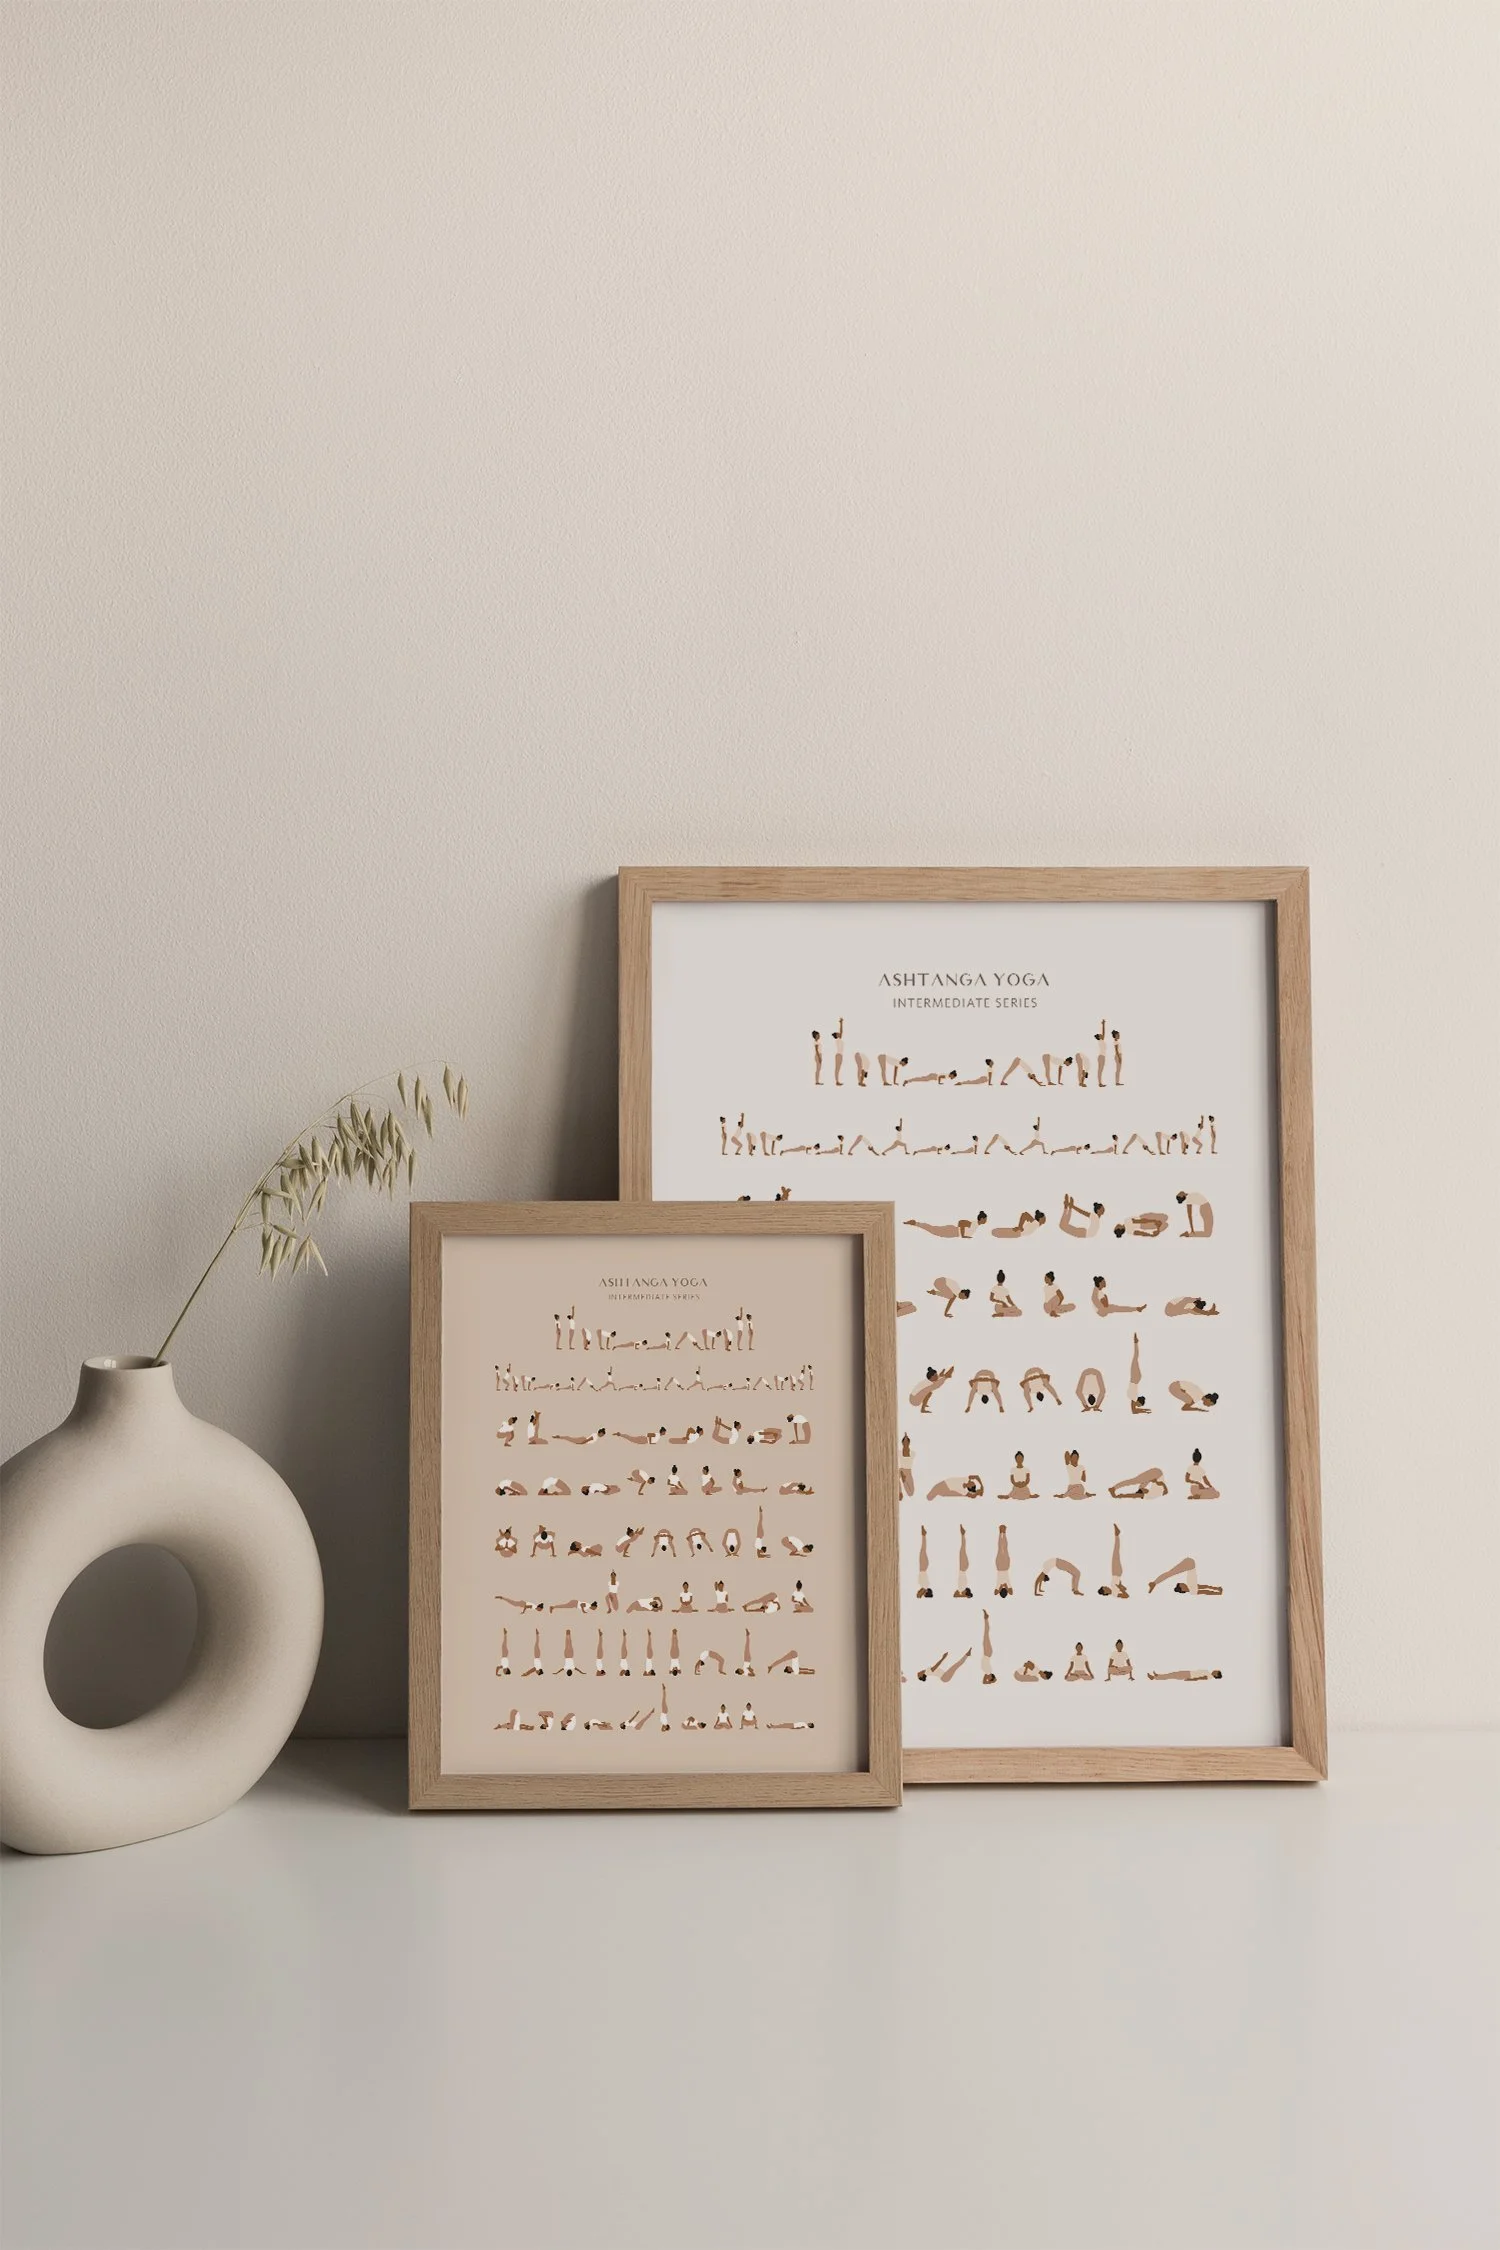 ASHTANGA YOGA
INTERMEDIATE SERIES
ASHTANGA YOGA
INTERMEDIATE SERIES